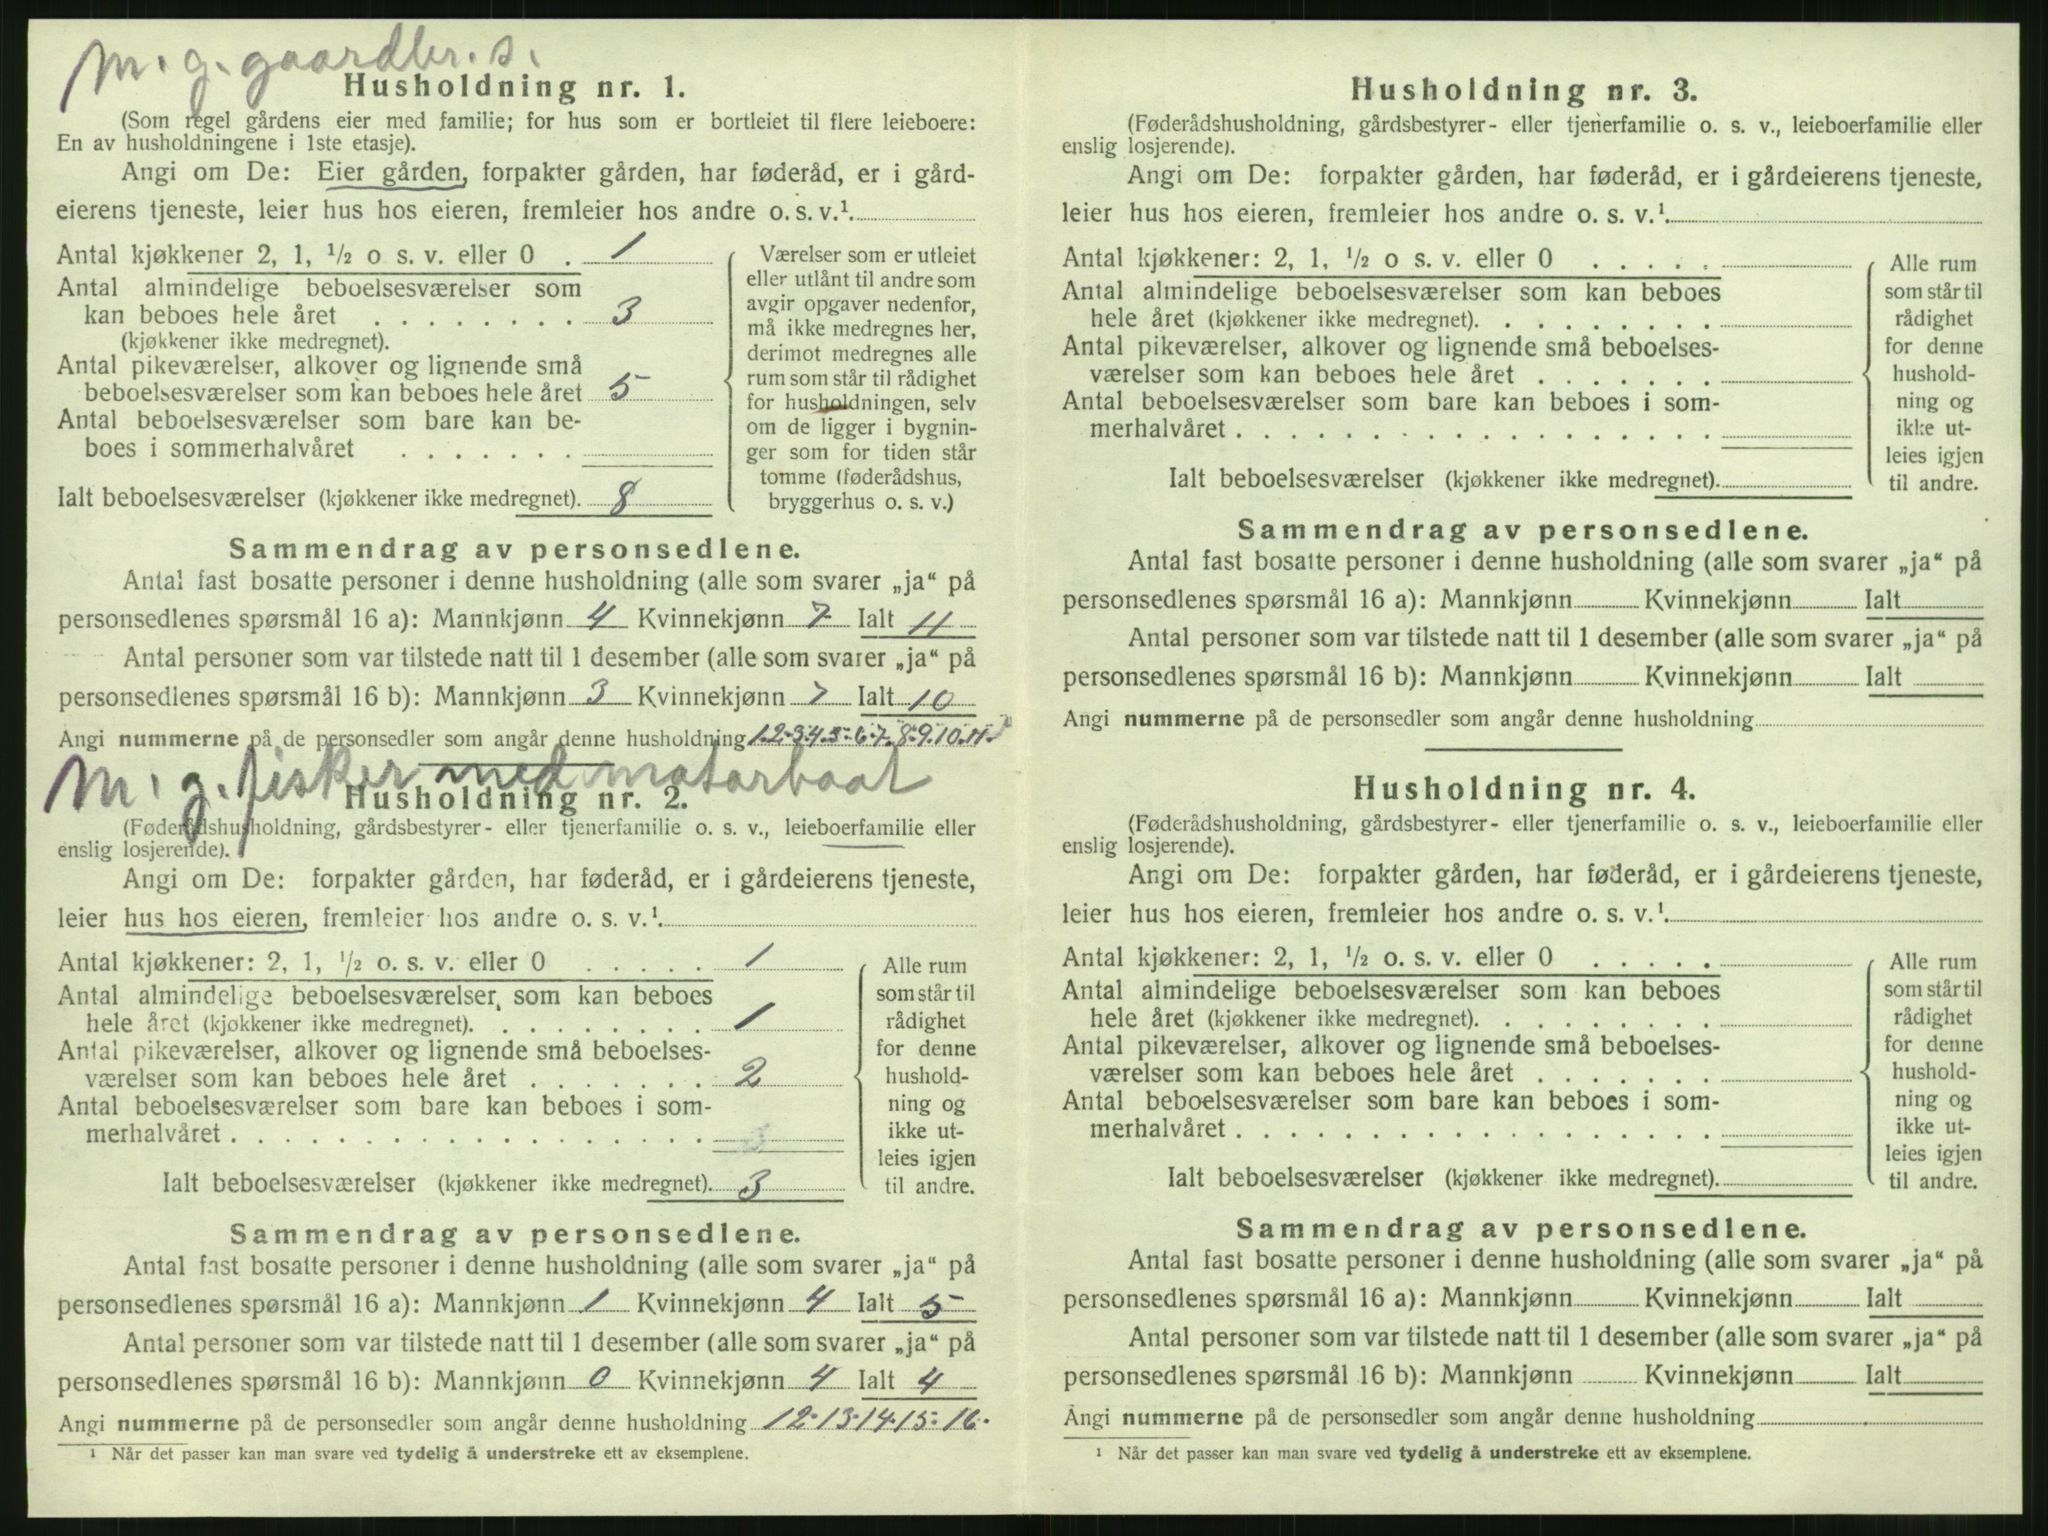 m. g. gaardbr. s.
Husholdning nr. 1.
(Som regel gårdens eier med familie; for hus som er bortleiet til flere leieboere:
En av husholdningene i 1ste etasje).
Angi om De: Eier gården, forpakter gården, har føderåd, er i gård-
eierens tjeneste, leier hus hos eieren, fremleier hos andre o. s. v.¹.
Antal kjøkkener 2, 1, ½ o s. v. eller 0 . 1
Antal almindelige beboelsesværelser som
kan beboes hele året . . . . . . . . 3
(kjøkkener ikke medregnet).
Antal pikeværelser, alkover og lignende små
beboelsesværelser som kan beboes hele året 5
Antal beboelsesværelser som bare kan be-
boes i sommerhalvåret . . . . . . .
Ialt beboelsesværelser (kjøkkener ikke medregnet). 8
Værelser som er utleiet
eller utlånt til andre som
avgir opgaver nedenfor,
må ikke medregnes her,
derimot medregnes alle
rum som står til rådighet
for husholdningen, selv
om de ligger i bygnin-
ger som for tiden står
tomme (føderådshus,
bryggerhus o. s. v.)
Sammendrag av personsedlene.
Antal fast bosatte personer i denne husholdning (alle som svarer „ja“ på
personsedlenes spørsmål 16 a): Mannkjønn 4 Kvinnekjønn 7 Ialt 11
Antal personer som var tilstede natt til 1 desember (alle som svarer „ja“ på
personsedlenes spørsmål 16 b): Mannkjønn 3 Kvinnekjønn 7 Ialt 10
Angi nummerne på de personsedler som angår denne husholdning 1.2.3.4.5.6.7.8.9.10.11.
m. g. fisker med motorbaat
Husholdning nr. 2.
(Føderådshusholdning, gårdsbestyrer- eller tjenerfamilie o. s. v., leieboerfamilie eller
enslig losjerende).
Angi om De: forpakter gården, har føderåd, er i gårdeierens tjeneste,
leier hus hos eieren, fremleier hos andre o. s. v.¹.
Antal kjøkkener: 2, 1, ½ o. s. v. eller 0 . . . . . 1
Antal almindelige beboelsesværelser som kan beboes
hele året (kjøkkener ikke medregnet). . . . . . . . . 1
Antal pikeværelser, alkover og lignende små beboelses-
værelser som kan beboes hele året . . . . . . . 2
Antal beboelsesværelser som bare kan beboes i som-
merhalvåret . . . . . . . . . . . . . . . . . . 3
Ialt beboelsesværelser (kjøkkener ikke medregnet). 3
Alle rum
som står til
rådighet
for denne
hushold-
ning og
ikke ut-
leies igjen
til andre.
Sammendrag av personsedlene.
Antal fast bosatte personer i denne husholdning (alle som svarer „ja“ på
personsedlenes spørsmål 16 a): Mannkjønn 1 Kvinnekjønn 4 Ialt 5
Antal personer som var tilstede natt til 1 desember (alle som svarer „ja“ på
personsedlenes spørsmål 16 b): Mannkjønn 0 Kvinnekjønn 4 Ialt 4
Angi nummerne på de personsedler som angår denne husholdning 12.13.14.15.16.
¹ Når det passer kan man svare ved tydelig å understreke ett av eksemplene.
Husholdning nr. 3.
(Føderådshusholdning, gårdsbestyrer- eller tjenerfamilie o. s. v., leieboerfamilie eller
enslig losjerende).
Angi om De: forpakter gården, har føderåd, er i gårdeierens tjeneste,
leier hus hos eieren, fremleier hos andre o. s. v.¹.
Antal kjøkkener: 2, 1, ½ o s. v. eller 0 . . . . .
Antal almindelige beboelsesværelser som kan beboes
hele året (kjøkkener ikke medregnet). . . . . . . . .
Antal pikeværelser, alkover og lignende små beboelses-
værelser som kan beboes hele året . . . . . . .
Antal beboelsesværelser som bare kan beboes i som-
merhalvåret . . . . . . . . . . . . . . . . . .
Ialt beboelsesværelser (kjøkkener ikke medregnet).
Alle rum
som står til
rådighet
for denne
hushold-
ning og
ikke ut-
leies igjen
til andre.
Sammendrag av personsedlene.
Antal fast bosatte personer i denne husholdning (alle som svarer „ja“ på
personsedlenes spørsmål 16 a): Mannkjønn Kvinnekjønn Ialt
Antal personer som var tilstede natt til 1 desember (alle som svarer „ja“ på
personsedlenes spørsmål 16 b): Mannkjønn Kvinnekjønn Ialt
Angi nummerne på de personsedler som angår denne husholdning
Husholdning nr. 4.
(Føderådshusholdning, gårdsbestyrer- eller tjenerfamilie o. s. v., leieboerfamilie eller
enslig losjerende).
Angi om De: forpakter gården, har føderåd, er i gårdeierens tjeneste,
leier hus hos eieren, fremleier hos andre o. s. v.¹.
Antal kjøkkener: 2, 1, ½ o. s. v. eller 0 . . . . .
Antal almindelige beboelsesværelser som kan beboes
hele året (kjøkkener ikke medregnet). . . . . . . . .
Antal pikeværelser, alkover og lignende små beboelses-
værelser som kan beboes hele året . . . . . . .
Antal beboelsesværelser som bare kan beboes i som-
merhalvåret . . . . . . . . . . . . . . . . . .
Ialt beboelsesværelser (kjøkkener ikke medregnet).
Alle rum
som står til
rådighet
for denne
hushold-
ning og
ikke ut-
leies igjen
til andre.
Sammendrag av personsedlene.
Antal fast bosatte personer i denne husholdning (alle som svarer „ja“ på
personsedlenes spørsmål 16 a): Mannkjønn Kvinnekjønn Ialt
Antal personer som var tilstede natt til 1 desember (alle som svarer „ja“ på
personsedlenes spørsmål 16 b): Mannkjønn Kvinnekjønn Ialt
Angi nummerne på de personsedler som angår denne husholdning
¹ Når det passer kan man svare ved tydelig å understreke ett av eksemplene.